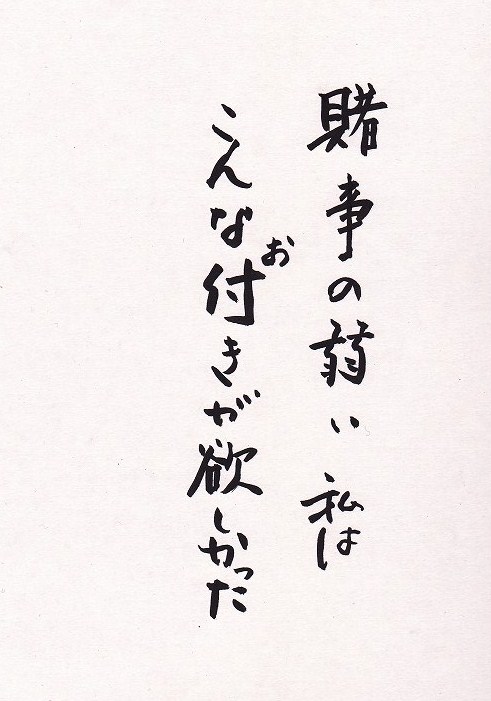 賭事の弱い私は
こんなお付きが欲しかった